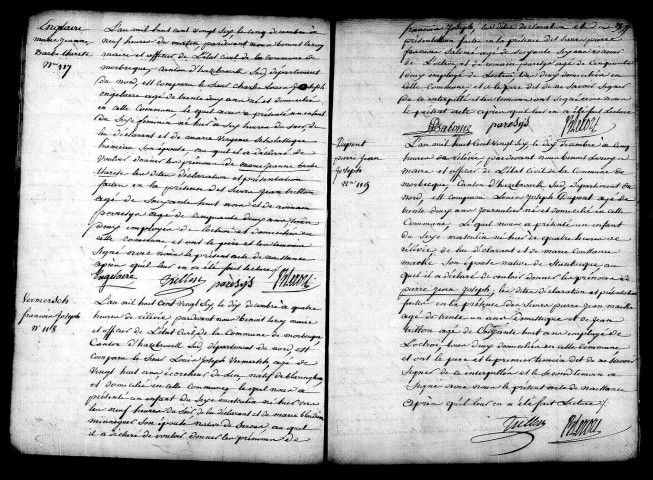 Englaere
marie Jeanne
Barbe thérèse
n° 117
L'an mil huit cent vingt six le cinq décembre à
neuf heures du matin pardevant nous benoit leroy
maire et officier de l'état Civil de la commune de
morbecque, canton d'hazebrouck Sud, département
du nord, est comparu le Sieur Charles Louis Joseph
engelaere agé de trente ans né et domicilié
en cette Commune le quel nous a présenté un enfant
du Sexe féminin né hier à six heures du soir, de
lui déclarant et de marie
son épouse au quel il a déclaré de
vouloir donner les prénoms de marie Jeanne barbe
thérèse les dites déclaration et présentation
faites en la présence des Sieurs Jean tritton
agé de Soixante huit ans et de romain
paresys agé de cinquante deux ans
deux employés de l'octroi et domiciliés en
cette commune et ont le père et les temoins
Signé avec nous le présent acte de naissance
après qu'il leur en a été fait lecture
Engelaere Tritton paresys B Leroi
Vermersch
francois Joseph
n° 118
L'an mil huit Cent Vingt Six, le dix décembre à quatre
heures de relevée pardevant nous benoit leroy maire
et officier de l'état Civil de la Commune de morbecque,
Canton d'hazebrouck Sud, département du nord, est
Comparu le Sieur Louis Joseph Vermersch agé de
Vingt huit ans de lin, natif de
et domicilié en cette Commune le quel nous a
présenté un enfant du Sexe masculin né hier
les neuf heures du Soir de lui déclarant et de marie
son épouse native de au quel
il a déclaré de vouloir donner les prénoms de
francois Joseph, les dites déclaration et
présentation faites en la présence des Sieurs pierre
francois Salomé agé de Soixante
de l'octroi et de romain parésys agé de Cinquante
deux employé de l'octroi tous deux domiciliés en
cette Commune et a le père dit de ne savoir Signer
de ce interpellé et les temoins ont Signé avec nous
le présent acte après qu'il leur en a été fait lecture
Salomé paresys B Leroi
Dupont
pierre Jean
Joseph
n° 119
L'an mil huit Cent Vingt Six, le dix décembre à cinq
heures de relevée pardevant nous benoit leroy
maire et officier de l'état Civil de la Commune de
morbecque, Canton d'hazebrouck Sud, département du
nord, est comparu Louis Joseph Dupont agé
de trente deux ans Journalier né et domicilié en cette
Commune, le quel nous a présenté un enfant
du Sexe masculin né hier à quatre heures de
relevée de lui déclarant et de marie Constance
maché son épouse native de Steenbecque au
quel il a déclaré de vouloir donner les prénoms de
pierre Jean Joseph, les dites déclaration et présentation
faites en la présence des Sieurs pierre Jean
agé de trente un ans Domestique et de Jean
tritton agé de Soixante huit ans employé de
l'octroi tous deux domiciliés en cette commune
et ont le père et le premier temoin dit de ne savoir
Signer de ce interpellés et le Second temoin a
Signé avec nous le présent acte de naissance
après qu'il leur en a été fait lecture
Tritton B Leroi